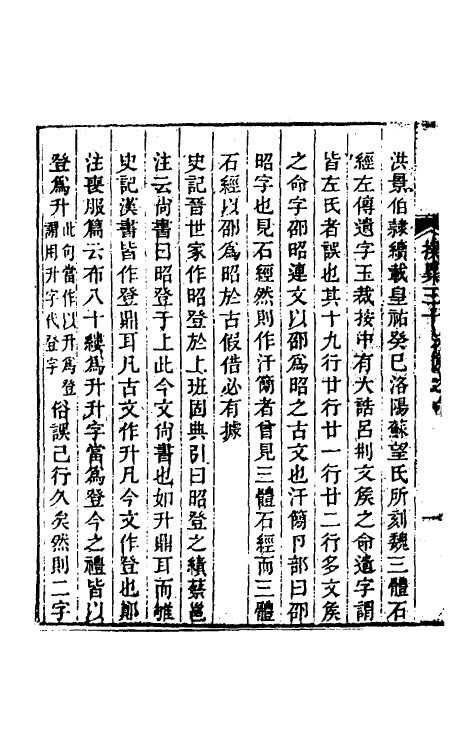 洪景伯隸續載皇祐癸巳洛陽蘇望氏所刻魏三體石
經左傳遺字玉裁按中有大誥呂刑文矦之命遺字謂
皆左氏者誤也其十九行廿行廿一行廿二行多文矦
之命字邵昭連文以邵爲昭之古文也汗簡卪部曰邵
昭字也見石經然則作汗簡者曾見三體石經而三體
石經以邵爲昭於古假借必有據
史記晉世家作昭登於上班固典引曰昭登之績蔡邕
注云尚書曰昭登于上此今文尚書也如升鼎耳而雊
史記漢書皆作登鼎耳凡古文作升凡今文作登也鄭
注喪服篇云布八十縷爲升升字當爲登今之禮皆以
登爲升此句當作以升爲登謂用升字代登字俗誤已行久矣然則二字